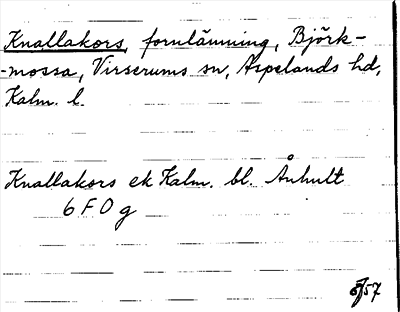 Knallakors, fornlämning, Björk-
-mossa, Virserums sn, Aspelands hd,
Kalm. l.
Knallakors ek Kalm. bl. Ånhult
6 F 0 g